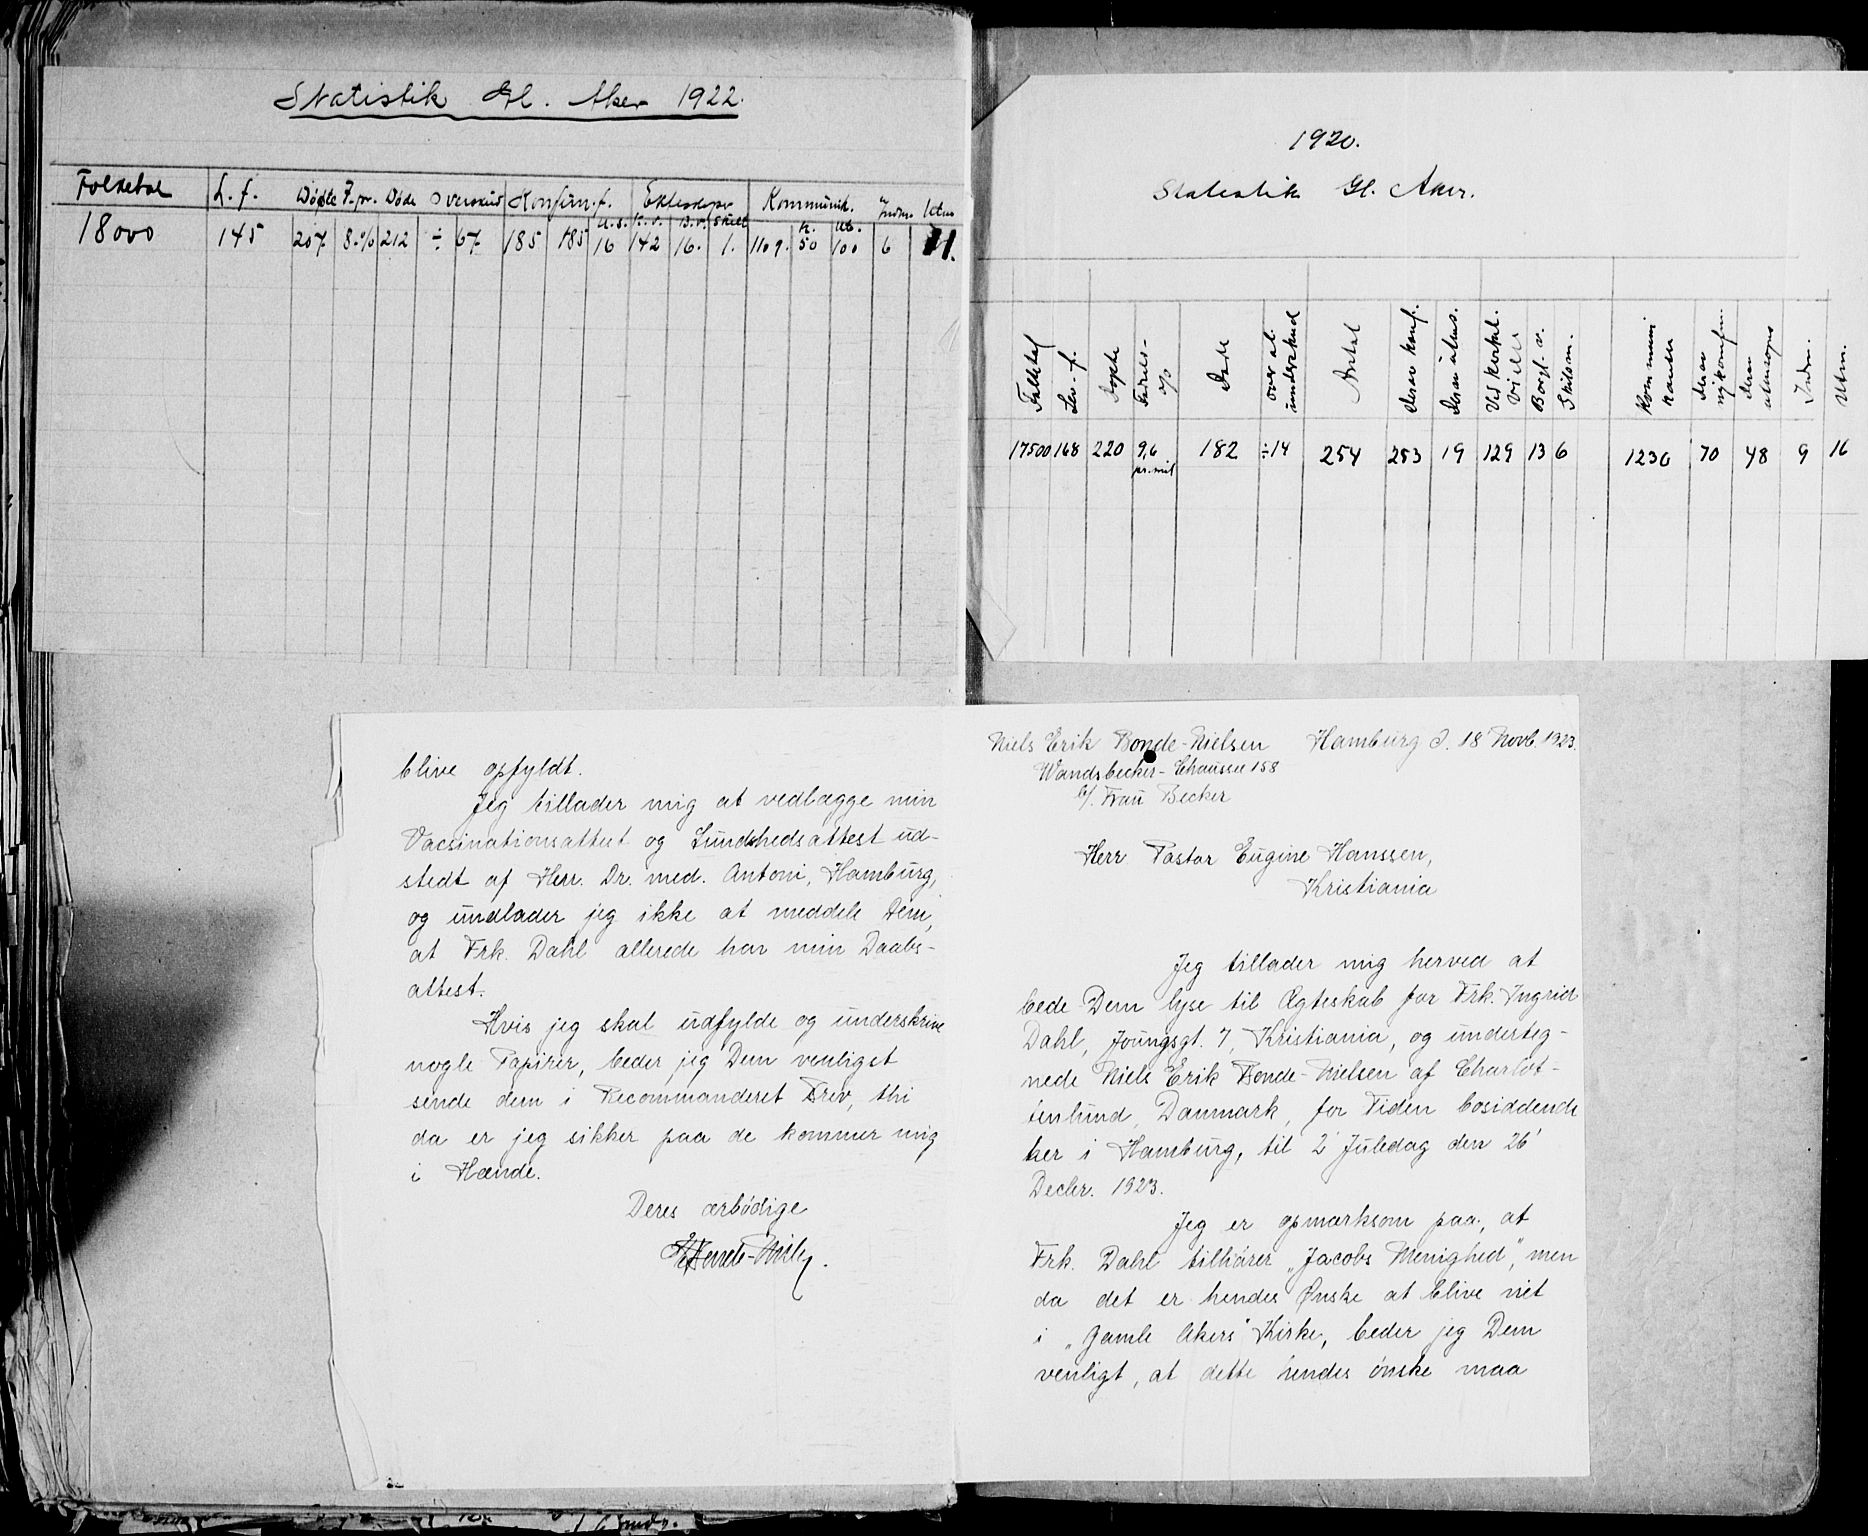 Statistik Gl. Aker 1922.
Folketal L. f. Døpte F. pr. Døde Overskud Konfirm. f. Ekteskaper Kommunik. Indm. Utm.
U. s. K. v. B. v. Skilt K. Ut.
18000 145 207 8.% 212 ÷ 67 185 185 16 142 16. 1. 1109. 50 100 6 11.
1920.
Statistik Gl. Aker.
Folketal Lev. f. Døpte Føtsels- % Døde over el. underskud Antal derav konf. derav utens. Ved kirkel. vielse Borgl. v. Skilsm. Kommuni kanter derav nykonfirm. derav utensogns Indm. Utm.
17500 168 220 9,6 pr. mil 182 ÷14 254 253 19 129 13 6 1230 70 48 9 16
Niels Erik Bonde-Nielsen Hamburg d. 18 Novb. 1923.
Wandsbecker-Chaussee 158
b/. Frau Becker
Herr Pastor Eugine Hanssen,
Kristiania
Jeg tillader mig herved at
bede Dem lyse til Ægteskab for Frk. Ingrid
Dahl, Joungsgt. 7, Kristiania, og underteg-
nede Niels Erik Bonde-Nielsen af Charlot-
tenlund, Danmark, for Tiden bosiddende
her i Hamburg, til 2' Juledag den 26'
Decbr. 1923.
Jeg er opmærksom paa, at
Frk. Dahl tilhører „Jacobs Menighed", men
da det er hendes Ønske at blive viet
i „Gamle Akers" Kirke, beder jeg Dem
venligt, at dette hendes ønske maa
blive opfyldt.
Jeg tillader mig at vedlægge min
Vacsinationsattest og Sundshedsattest ud-
stedt af Herr. Dr. med. Antoni, Hamburg,
og undlader jeg ikke at meddele Dem,
at Frk. Dahl allerede har min Daabs-
attest.
Hvis jeg skal udfylde og underskrive
nogle Papirer, beder jeg Dem venligst
sende dem i Recommanderet Brev, thi
da er jeg sikker paa de kommer mig
i Hænde.
Deres ærbødige
Bonde-Nielsen.